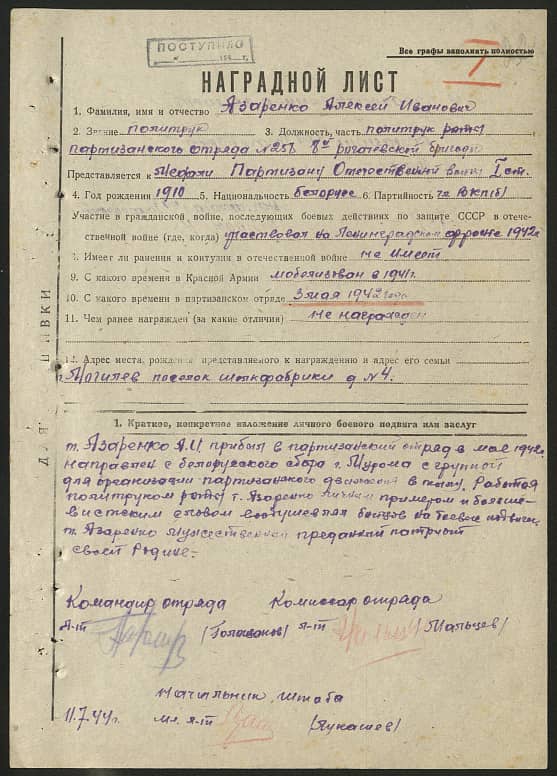 ПОСТУПИЛО
194 г.
Все графы заполнять полностью
I
НАГРАДНОЙ ЛИСТ
1. Фамилия, имя и отчество Азаренко Алексей Иванович
2. Звание политрук 3. Должность, часть политрук роты
партизанского отряда №256 8й рогачевской бригады
Представляется к Медали Партизану Отечественной войны I ст.
4. Год рождения 1910 5. Национальность белорус 6. Партийность чл ВКП(б)
Участие в гражданской войне, последующих боевых действиях по защите СССР в отече-
ственной войне (где, когда) участвовал на Ленинградском фронте 1942г
8. Имеет ли ранения и контузии в отечественной войне не имеет
9. С какого времени в Красной Армии мобилизован в 1941г.
10. С какого времени в партизанском отряде 3 мая 1942 года
11. Чем ранее награжден (за какие отличия) не награжден
12. Адрес места, рождения представляемого к награждению и адрес его семьи
г Могилев поселок шелкфабрики д №4.
ДЛЯ
1. Краткое, конкретное изложение личного боевого подвига или заслуг
т. Азаренко А.И. прибыл в партизанский отряд в мае 1942г.
направлен с белорусского сбора г. Мурома с группой
для организации партизанского движения в тылу. Работая
политруком роты т. Азаренко личным примером и больше-
вистским словом воодушевлял бойцов на боевые подвиги.
т. Азаренко мужественный преданный патриот
своей Родине.
Командир отряда Комиссар отряда
л-т (Голованов) л-т (Мальцев)
Начальник штаба
11.7.44г. мл. л-т (Лукашев)